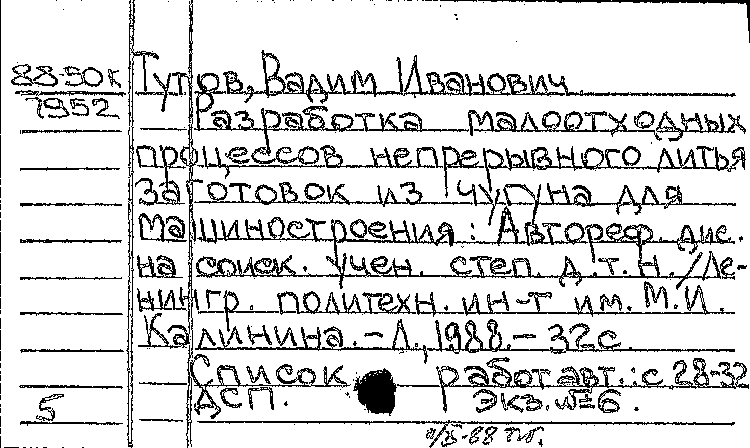 88-50к Тутов, Вадим Иванович
7952 Разработка малоотходных
процессов непрерывного литья
заготовок из чугуна для
машиностроения : Автореф. дис.
на соиск. учен. степ. д.т.н. /Ле-
нингр. политехн. ин-т им. М.И.
Калинина. – Л., 1988. – 32 с.
Список работ авт.: с 28-32
5 ДСП. Экз. №6.